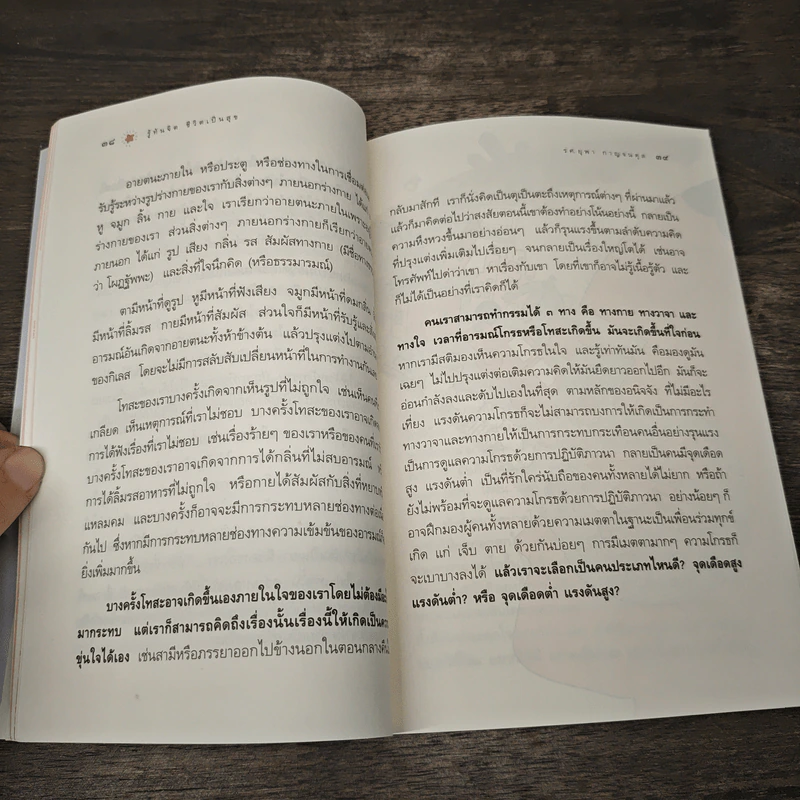 ๓๘ รู้ทันจิต ชีวิตเป็นสุข
อายตนะภายใน หรือประตู หรือช่องทางในการเชื่อม
รับรู้ระหว่างรูปร่างกายของเรากับสิ่งต่างๆ ภายนอกร่างกาย ได้แก่
หู จมูก ลิ้น กาย และใจ เราเรียกว่าอายตนะภายในเพราะ
ร่างกายของเรา ส่วนสิ่งต่างๆ ภายนอกร่างกายก็เรียกว่า
ภายนอก ได้แก่ รูป เสียง กลิ่น รส สัมผัสทางกาย (มีชื่อทาง
ว่า โผฏฐัพพะ) และสิ่งที่ใจนึกคิด (หรือธรรมารมณ์)
ตามีหน้าที่ดูรูป หูมีหน้าที่ฟังเสียง จมูกมีหน้าที่ดมกลิ่น
มีหน้าที่ลิ้มรส กายมีหน้าที่สัมผัส ส่วนใจก็มีหน้าที่รับรู้และ
อารมณ์อันเกิดจากอายตนะทั้งห้าข้างต้น แล้วปรุงแต่งไปตาม
ของกิเลส โดยจะไม่มีการสลับสับเปลี่ยนหน้าที่ในการทำงานกัน
โทสะของเราบางครั้งเกิดจากเห็นรูปที่ไม่ถูกใจ เช่นเห็นคน
เกลียด เห็นเหตุการณ์ที่เราไม่ชอบ บางครั้งโทสะของเราอาจเกิด
การได้ฟังเรื่องที่เราไม่ชอบ เช่นเรื่องร้ายๆ ของเราหรือของคนที่
บางครั้งโทสะของเราอาจเกิดจากการได้กลิ่นที่ไม่สบอารมณ์
การได้ลิ้มรสอาหารที่ไม่ถูกใจ หรือกายได้สัมผัสกับสิ่งที่หยาบ
แหลมคม และบางครั้งก็อาจจะมีการกระทบหลายช่องทางต่อ
กันไป ซึ่งหากมีการกระทบหลายช่องทางความเข้มข้นของอารมณ์
ยิ่งเพิ่มมากขึ้น
บางครั้งโทสะอาจเกิดขึ้นเองภายในใจของเราโดยไม่ต้องมี
มากระทบ แต่เราก็สามารถคิดถึงเรื่องนั้นเรื่องนี้ให้เกิดเป็น
ขุ่นใจได้เอง เช่นสามีหรือภรรยาออกไปข้างนอกในตอนกลางคืน
รศ.ยุพา กาญจนดุล ๓๙
กลับมาสักที เราก็นั่งคิดเป็นตุเป็นตะถึงเหตุการณ์ต่างๆ ที่ผ่านมาแล้ว
แล้วก็มาคิดต่อไปว่าสงสัยตอนนี้เขาต้องทำอย่างโน้นอย่างนี้ กลายเป็น
ความหึงหวงขึ้นมาอย่างอ่อนๆ แล้วก็รุนแรงขึ้นตามลำดับความคิด
ที่ปรุงแต่งเพิ่มเติมไปเรื่อยๆ จนกลายเป็นเรื่องใหญ่โตได้ เช่นอาจ
โทรศัพท์ไปด่าว่าเขา หาเรื่องกับเขา โดยที่เขาก็อาจไม่รู้เนื้อรู้ตัว และ
ก็ไม่ได้เป็นอย่างที่เราคิดก็ได้
คนเราสามารถทำกรรมได้ ๓ ทาง คือ ทางกาย ทางวาจา และ
ทางใจ เวลาที่อารมณ์โกรธหรือโทสะเกิดขึ้น มันจะเกิดขึ้นที่ใจก่อน
หากเรามีสติมองเห็นความโกรธในใจ และรู้เท่าทันมัน คือมองดูมัน
เฉยๆ ไม่ไปปรุงแต่งต่อเติมความคิดให้มันยืดยาวออกไปอีก มันก็จะ
อ่อนกำลังลงและดับไปเองในที่สุด ตามหลักของอนิจจัง ที่ไม่มีอะไร
เที่ยง แรงดันความโกรธก็จะไม่สามารถบงการให้เกิดเป็นการกระทำ
ทางวาจาและทางกายให้เป็นการกระทบกระเทือนคนอื่นอย่างรุนแรง
เป็นการดูแลความโกรธด้วยการปฏิบัติภาวนา กลายเป็นคนมีจุดเดือด
สูง แรงดันต่ำ เป็นที่รักใคร่นับถือของคนทั้งหลายได้ไม่ยาก หรือถ้า
ยังไม่พร้อมที่จะดูแลความโกรธด้วยการปฏิบัติภาวนา อย่างน้อยๆ ก็
อาจฝึกมองผู้คนทั้งหลายด้วยความเมตตาในฐานะเป็นเพื่อนร่วมทุกข์
เกิด แก่ เจ็บ ตาย ด้วยกันบ่อยๆ การมีเมตตามากๆ ความโกรธก็
จะเบาบางลงได้ แล้วเราจะเลือกเป็นคนประเภทไหนดี? จุดเดือดสูง
แรงดันต่ำ? หรือ จุดเดือดต่ำ แรงดันสูง?